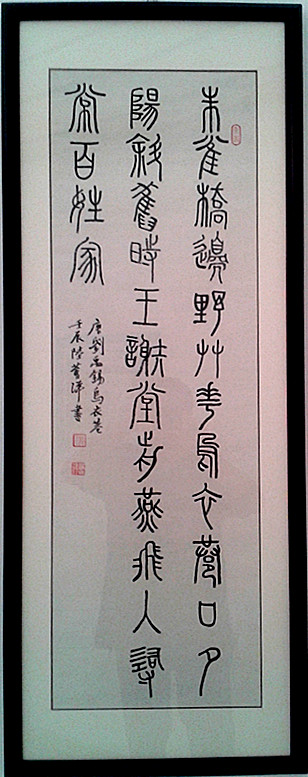 朱雀橋邊野艸華烏衣巷口夕
陽斜舊時王謝堂前燕飛入尋
常百姓家
唐劉禹錫烏衣巷
壬辰陸書